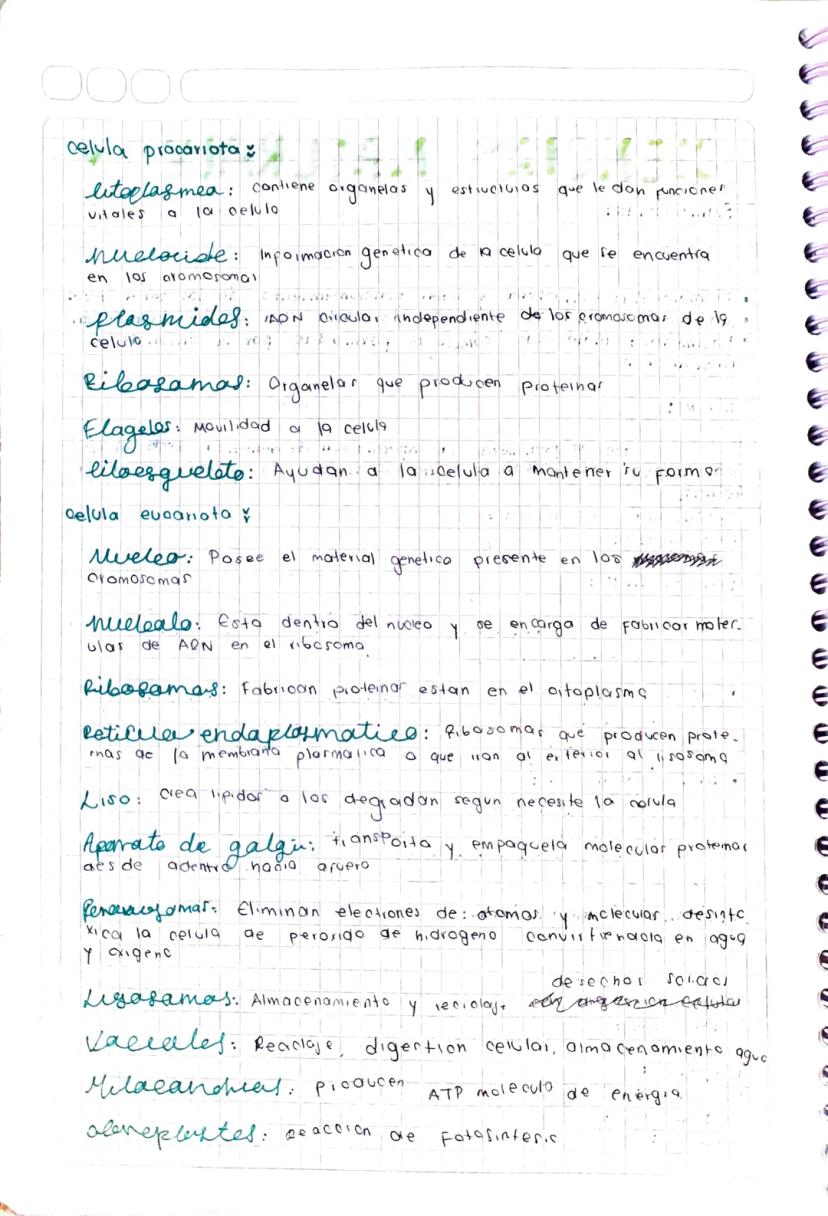 celula procariota:
Citoplasmea: contiene organelos y estructuras que le dan funciones
vitales a la celula
Nucleoide: Informacion genetica de la celula que se encuentra
en los cromosomas
Plasmides: ADN circular independiente de los cromosomas de la
celula
Ribosamas: Organelas que producen proteinas
Flageles: Movilidad a la celula
Citoesqueleto: Ayudan a la celula a mantener su forma
celula eucariota:
Nucleo: Posee el material genetico presente en los
cromosomas
Nucleolo: Esta dentro del nucleo y se encarga de fabricar molec-
ulas de ADN en el ribosoma
Ribosamas: Fabrican proteinas estan en el citoplasma
Reticulo endoplasmatico: Ribosomas que producen prote-
inas de la membrana plasmatica o que iran al exterior al lisosoma
Liso: crea lipidos o los degradan segun necesite la celula
Aparato de golgi: transporta y empaqueta molecular proteinas
desde adentro hacia afuero
Eliminan electrones de: atomos y molecular desinto
xica la celula de peroxido de hidrogeno convirtiendola en agua
y oxigeno
desechos
Lisosamas: Almacenamiento y reciclaje
Vacuolas: Reciclaje, digestion celular, almacenamiento agua
Mitocondrias: producen ATP molecula de energia
cloroplastes: Reaccion de Fotosintesis